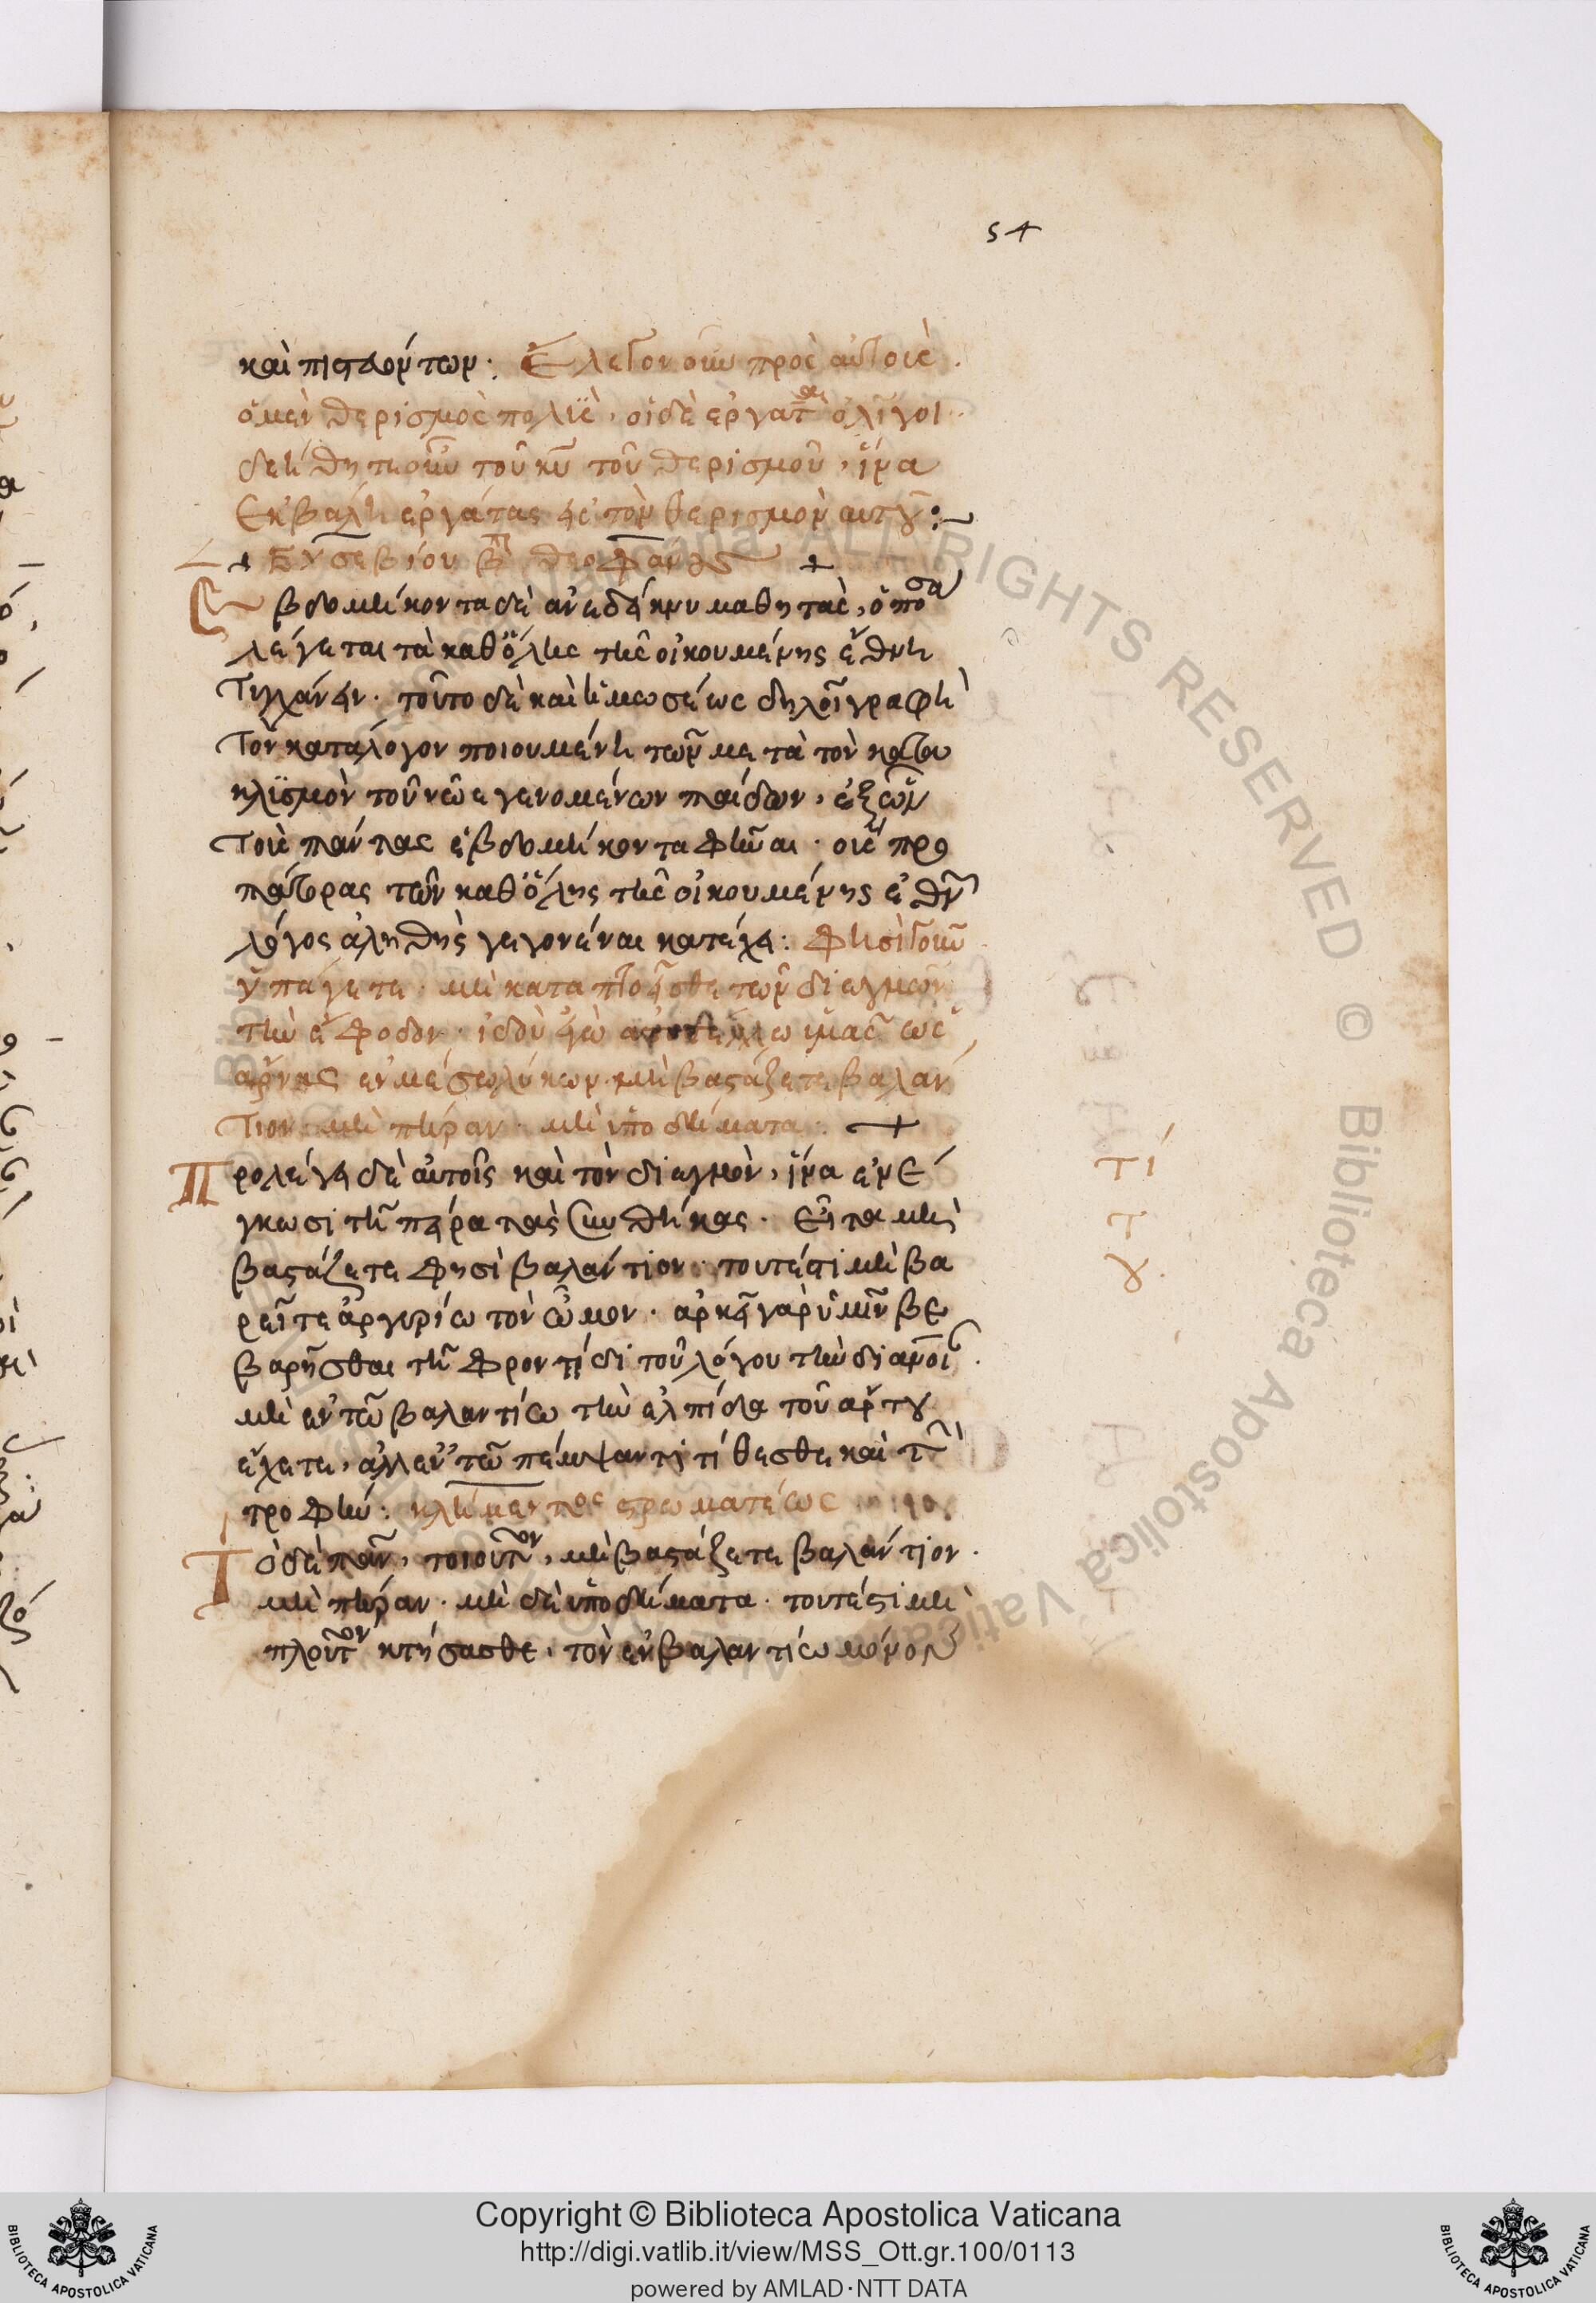 54
καὶ πιστευόντων· Ἔλεγον οὖν πρὸς αὐτούς·
ὁ μὲν θερισμὸς πολὺς, οἱ δὲ ἐργάται ὀλίγοι·
δεήθητε οὖν τοῦ κυ τοῦ θερισμοῦ, ἵνα
ἐκβάλῃ ἐργάτας εἰς τὸν θερισμὸν αὐτοῦ:
+ Εὐσεβίου θεοφανείας +
Ἑβδομήκοντα δὲ ἀνεδείκνυ μαθητὰς, ὁπόσα
λέγεται τὰ καθ' ὅλης τῆς οἰκουμένης ἔθνη
τυγχάνειν· τοῦτο δὲ καὶ ἡ μωσέως δηλοῖ γραφὴ
τὸν κατάλογον ποιουμένη τῶν μετὰ τὸν κατα
κλϋσμὸν τοῦ νῶε γενομένων παίδων, ἐξ ὧν
τοὺς πάντας ἑβδομήκοντα φῆναι· οὓς προ
πάτορας τῶν καθ' ὅλης τῆς οἰκουμένης ἐθνῶν
λόγος ἀληθὴς γεγονέναι κατέχει: φησὶ γοῦν
ὑπάγετε· μὴ καταπτοεῖσθε τῶν διωγμῶν
τὴν ἔφοδον· ἰδοὺ ἐγὼ ἀποστέλλω ὑμᾶς ὡς
ἄρνας ἐν μέσῳ λύκων· μὴ βαστάζετε βαλάν
τιον· μὴ πήραν· μὴ ὑποδήματα: +
Προλέγει δὲ αὐτοῖς καὶ τὸν διωγμὸν, ἵνα ἐνέ
γκωσι τῇ πείρα τὰς συνθήκας· εἶτα μὴ
βαστάζετε φησὶ βαλάντιον· τουτέστι μὴ βα
ρεῖτε ἀργυρίω τὸν ὦμον· ἀρκεῖ γὰρ ὑμῖν βε
βαρῆσθαι τῇ φροντίδι τοῦ λόγου τὴν διάνοιαν·
μὴ ἐν τῶ βαλαντίω τὴν ἐλπίδα τοῦ ἄρτου
ἔχετε, ἀλλ' ἐν τῶ πέμψαντι τίθεσθε καὶ τὴν
τροφήν: κλήμεντος στρωματέως
Τὸ δὲ πᾶν, τοιοῦτον, μὴ βαστάζετε βαλάντιον·
μὴ πήραν· μὴ δὲ ὑποδήματα· τουτέστι μὴ
πλοῦτον κτήσασθε, τὸν ἐν βαλαντίω μόνον
τί
τ
γ
Copyright © Biblioteca Apostolica Vaticana
http://digi.vatlib.it/view/MSS_Ott.gr.100/0113
powered by AMLAD·NTT DATA
BIBLIOTECA APOSTOLICA VATICANA
BIBLIOTECA APOSTOLICA VATICANA